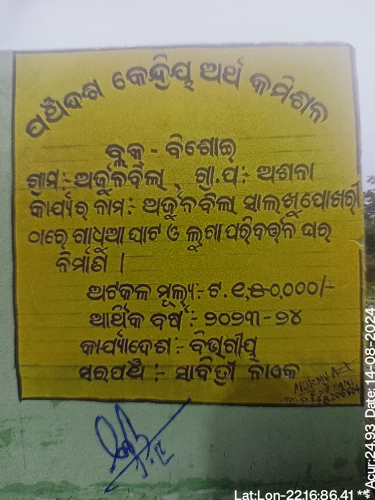 ପଞ୍ଚଦଶ କେନ୍ଦ୍ରିୟ ଅର୍ଥ କମିଶନ
ବ୍ଲକ୍ - ବିଶୋଇ
ଗ୍ରାମ:- ଅର୍ଜୁନବିଲା , ଗ୍ରା.ପ:- ଅଶନା
କାର୍ଯ୍ୟର ନାମ:- ଅର୍ଜୁନବିଲା ସାଲଖୁ ପୋଖରୀ
ଠାରେ ଗାଧୁଆ ଘାଟ ଓ ଲୁଗା ପରିବର୍ତ୍ତନ ଘର
ନିର୍ମାଣ |
ଅଟକଳ ମୂଲ୍ୟ:- ଟ.୧,୫୦,୦୦୦/-
ଆର୍ଥିକ ବର୍ଷ :- ୨୦୨୩-୨୪
କାର୍ଯ୍ୟାଦେଶ :- ବିଭାଗୀୟ
ସରପଞ୍ଚ :- ସାବିତ୍ରୀ ନାଏକ
Lat:Lon-22.16:86.41 **
Acur:24.93 Date: 14-08-2024